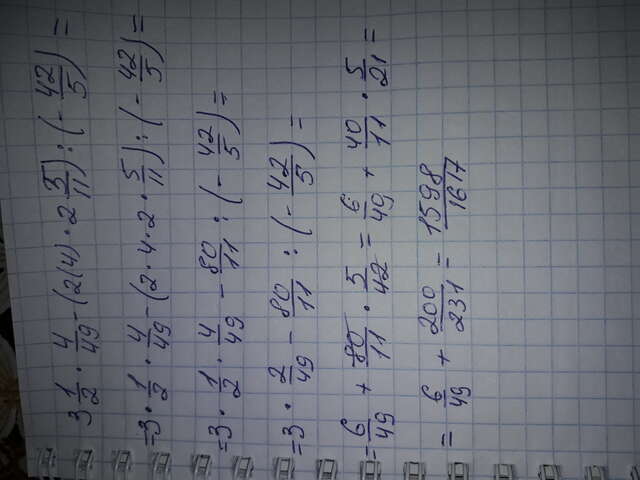 3 1/2 · 4/49 - (2(4) · 2 5/11) : (- 42/5) =
= 3 · 1/2 · 4/49 - (2 · 4 · 2 · 5/11) : (- 42/5) =
= 3 · 1/2 · 4/49 - 80/11 : (- 42/5) =
= 3 · 2/49 - 80/11 : (- 42/5) =
= 6/49 + 80/11 · 5/42 = 6/49 + 40/11 · 5/21 =
= 6/49 + 200/231 = 1598/1617